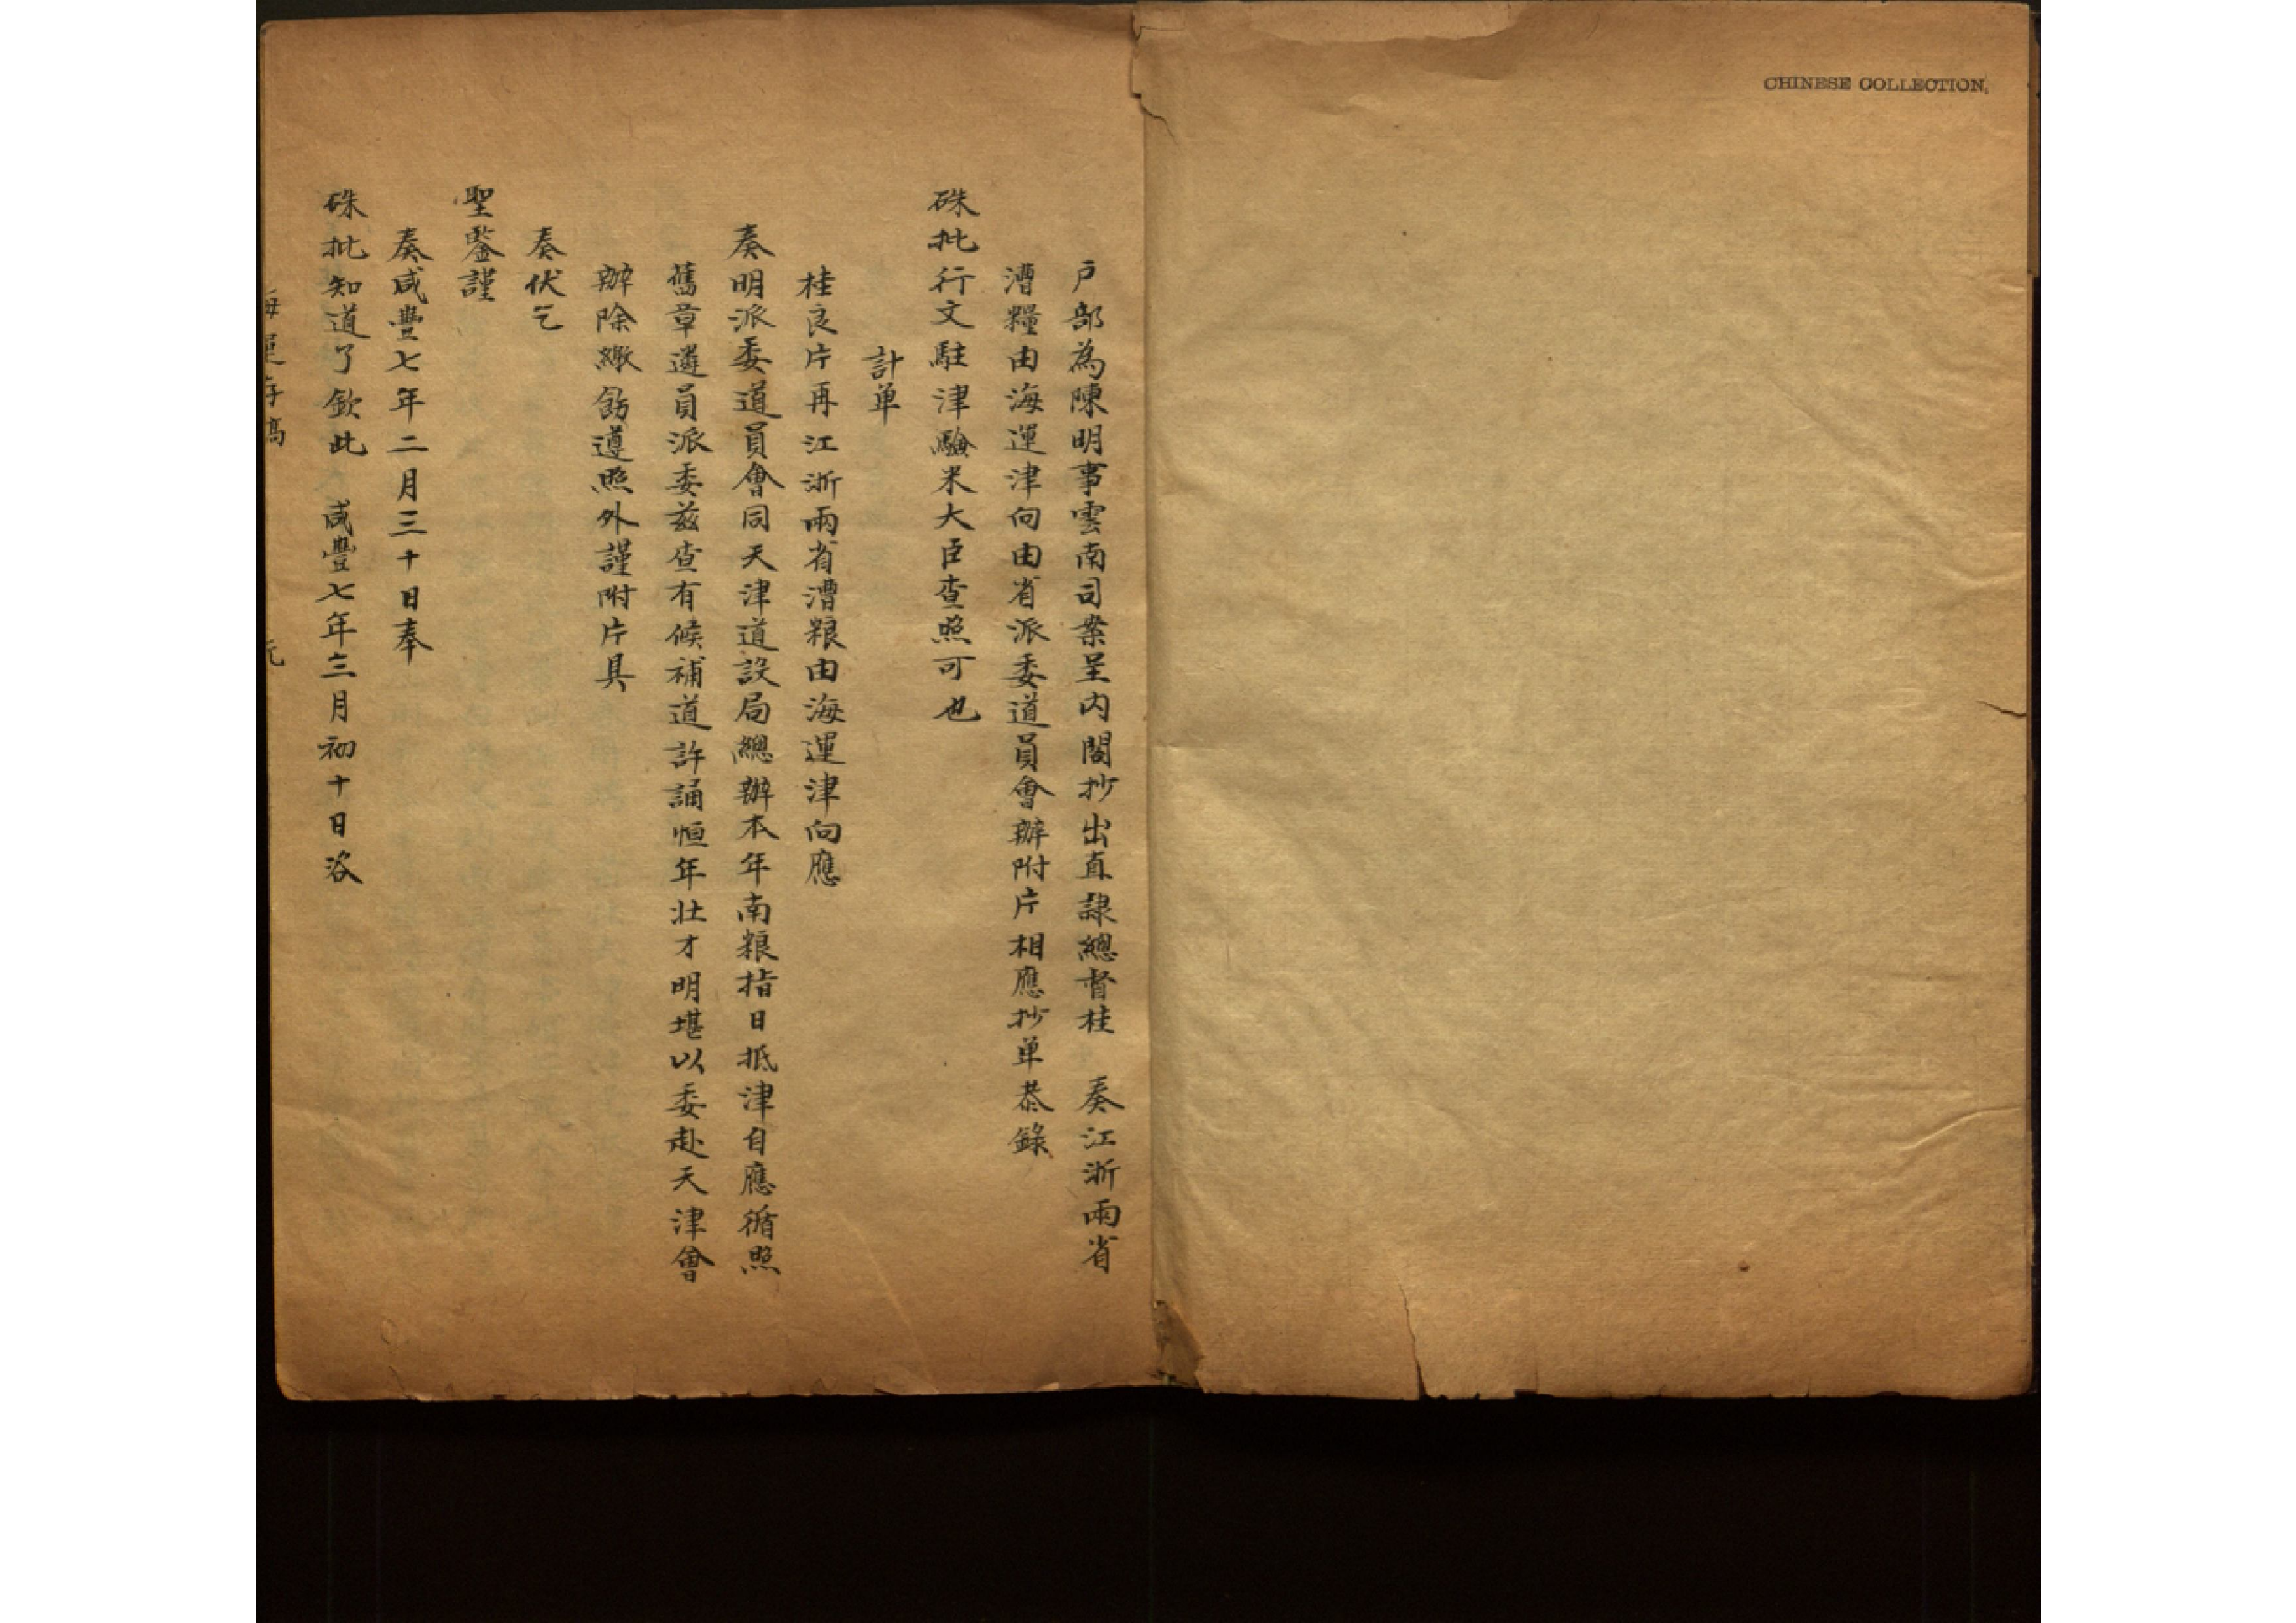 CHINESE COLLECTION
戶部為陳明事雲南司案呈內閣抄出直隸總督桂 奏江浙兩省
漕糧由海運津向由省派委道員會辦附片相應抄单恭錄
硃批行文駐津驗米大臣查照可也
計单
桂良片再江浙兩省漕粮由海運津向應
奏明派委道員會同天津道設局總辦本年南粮指日抵津自應循照
舊章遴員派委兹查有候補道許誦恒年壮才明堪以委赴天津會
辦除繳飭遵照外謹附片具
奏伏乞
聖鑒謹
奏咸豐七年二月三十日奉
硃批知道了欽此 咸豐七年三月初十日咨
海運存稿 元